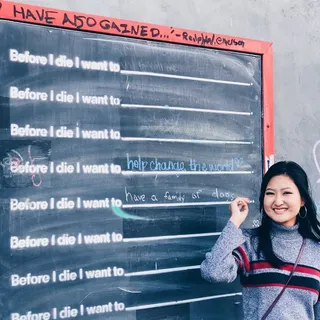 HAVE ALSO GAINED..." - Ralph W. Emerson
Before I die I want to
Before I die I want to
Before I die I want to
Before I die I want to help change the world
Before I die I want to have a family of dogs
Before I die I want to
Before I die I want to
Before I die I want to